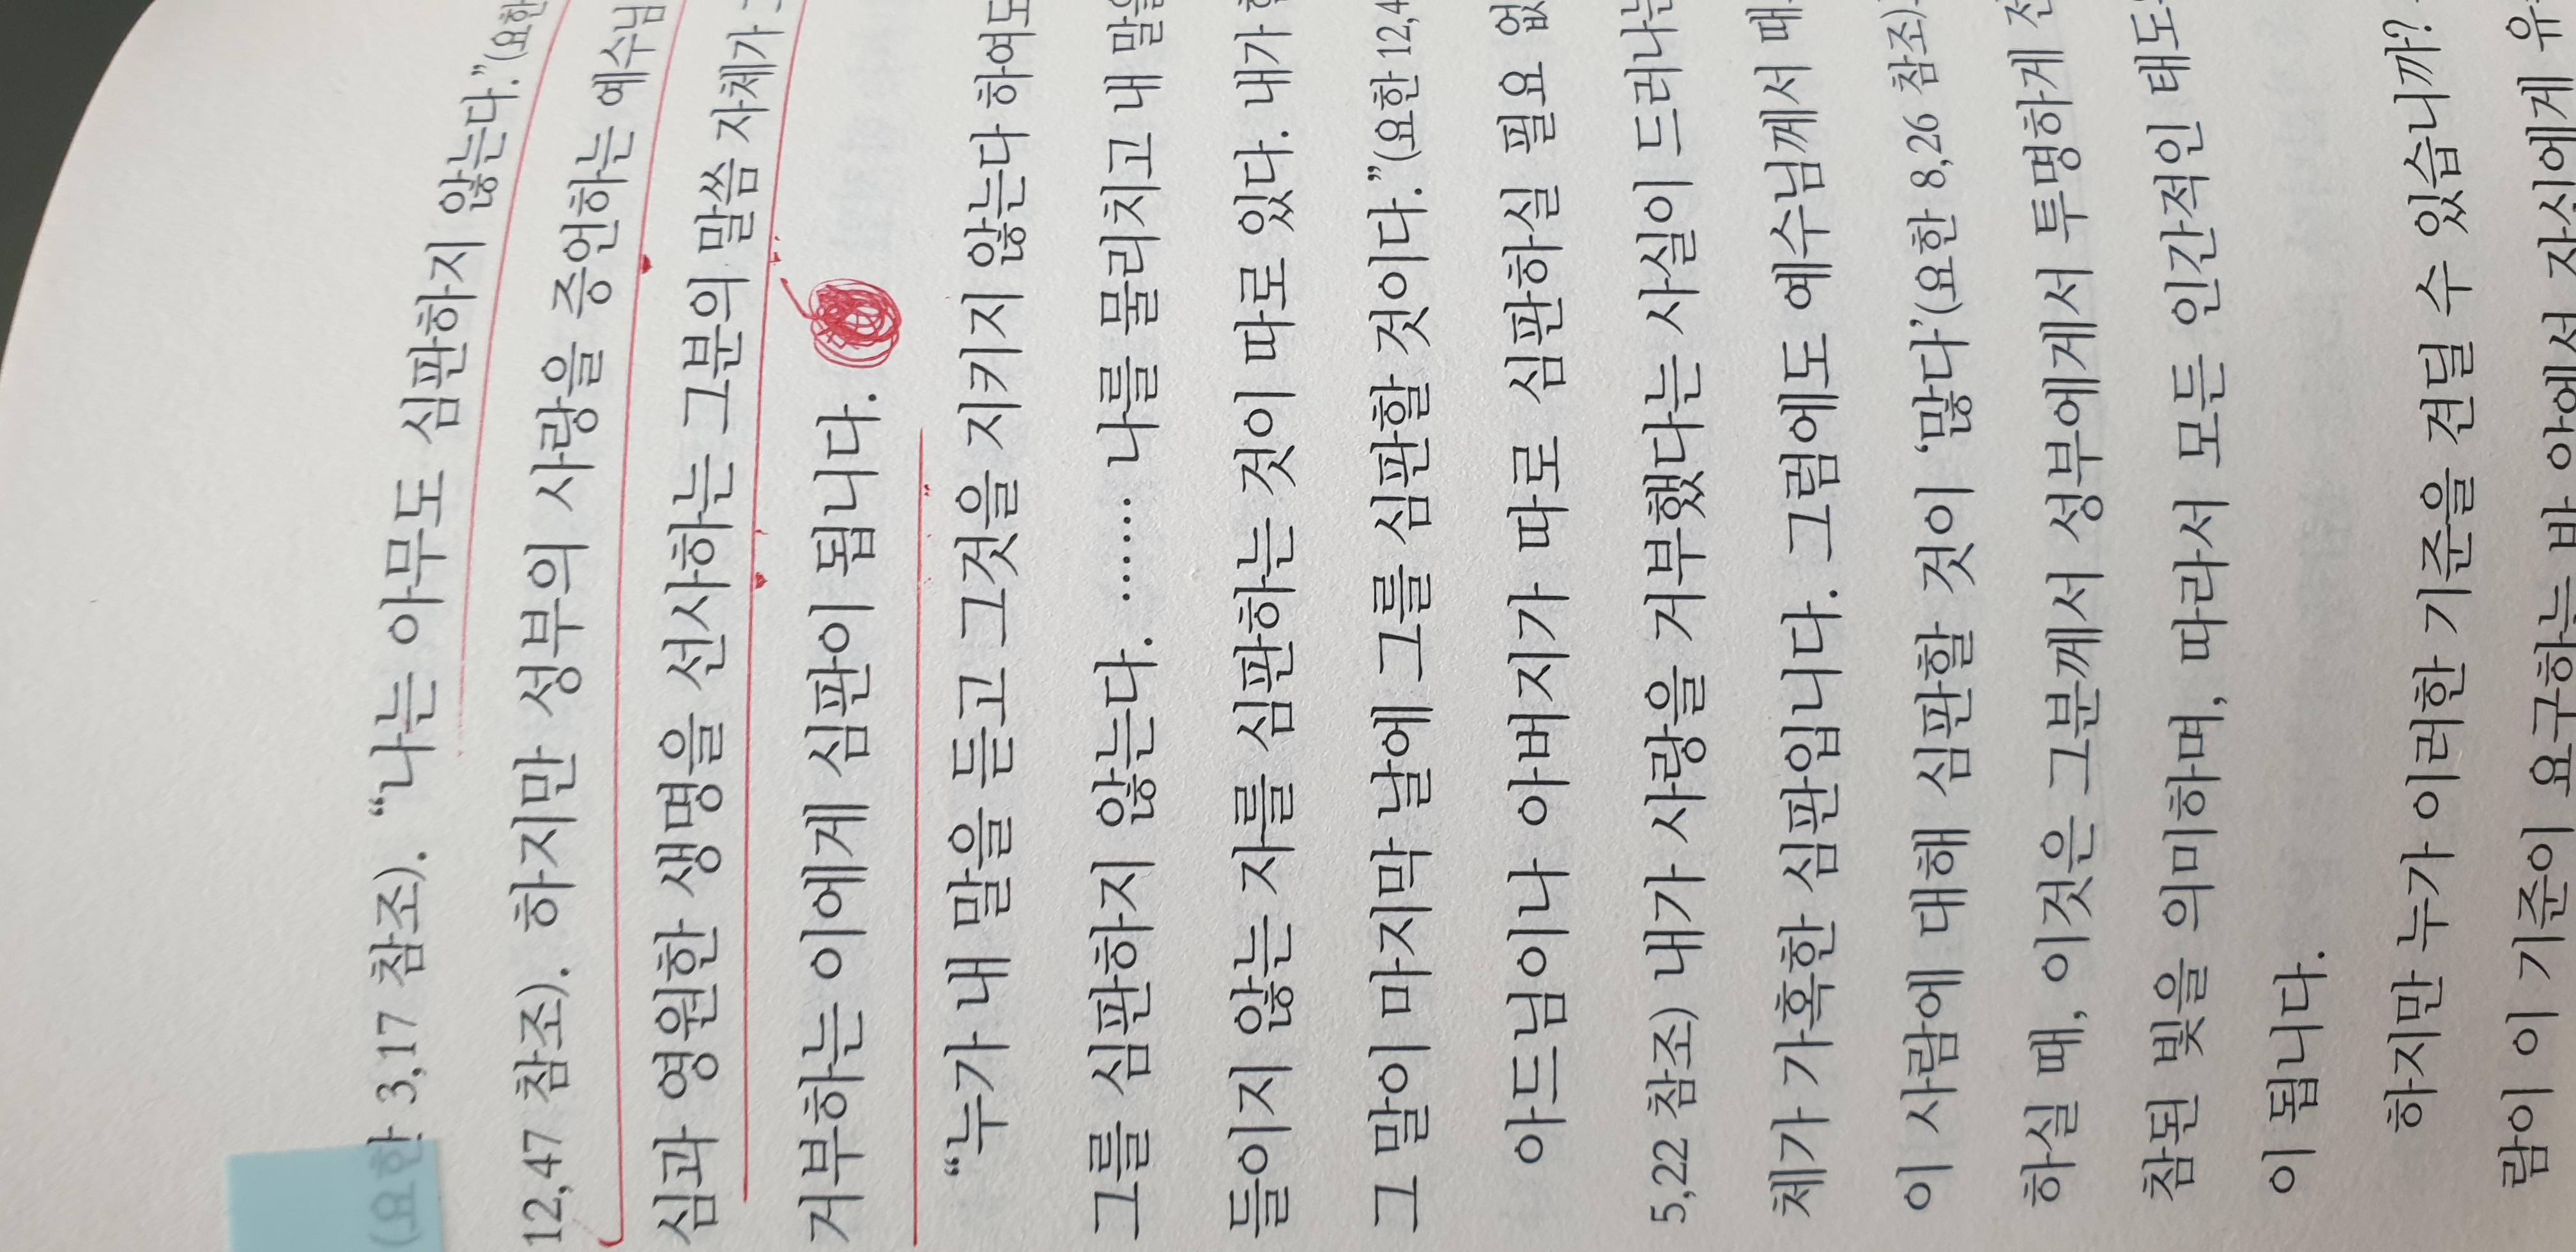 (요한 3,17 참조). “나는 아무도 심판하지 않는다.”(요한
12,47 참조). 하지만 성부의 사랑을 증언하는 예수님
심과 영원한 생명을 선사하는 그분의 말씀 자체가
거부하는 이에게 심판이 됩니다.
“누가 내 말을 듣고 그것을 지키지 않는다 하여도
그를 심판하지 않는다. …… 나를 물리치고 내 말을
들이지 않는 자를 심판하는 것이 따로 있다. 내가
그 말이 마지막 날에 그를 심판할 것이다.”(요한 12,4
아드님이나 아버지가 따로 심판하실 필요 없
5,22 참조) 내가 사랑을 거부했다는 사실이 드러나는
체가 가혹한 심판입니다. 그럼에도 예수님께서 때
이 사람에 대해 심판할 것이 ‘많다’(요한 8,26 참조)
하실 때, 이것은 그분께서 성부에게서 투명하게 전
참된 빛을 의미하며, 따라서 모든 인간적인 태도
이 됩니다.
하지만 누가 이러한 기준을 견딜 수 있습니까?
람이 이 기준이 요구하는 바 앞에서 자신에게 유